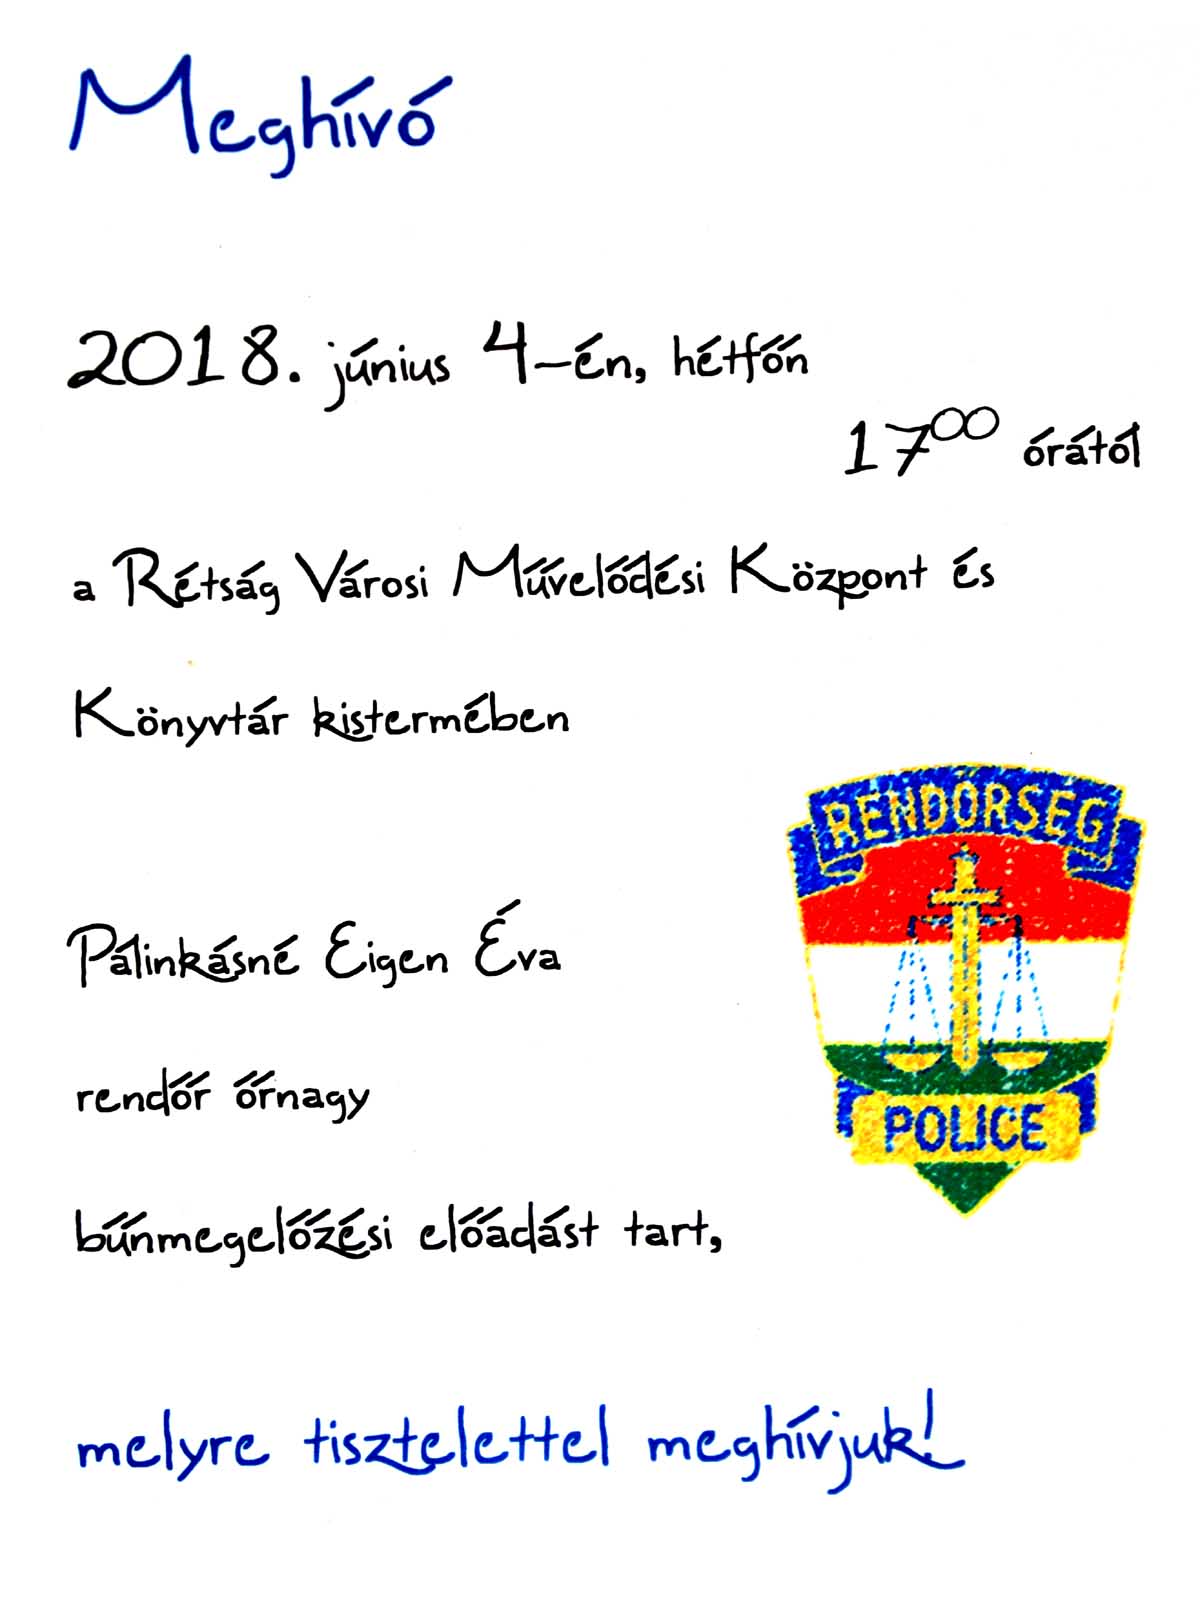 Meghívó
2018. június 4-én, hétfőn
17⁰⁰ órától
a Rétság Városi Művelődési Központ és
Könyvtár kistermében
RENDŐRSÉG
Pálinkásné Eigen Éva
rendőr őrnagy
POLICE
bűnmegelőzési előadást tart,
melyre tisztelettel meghívjuk!